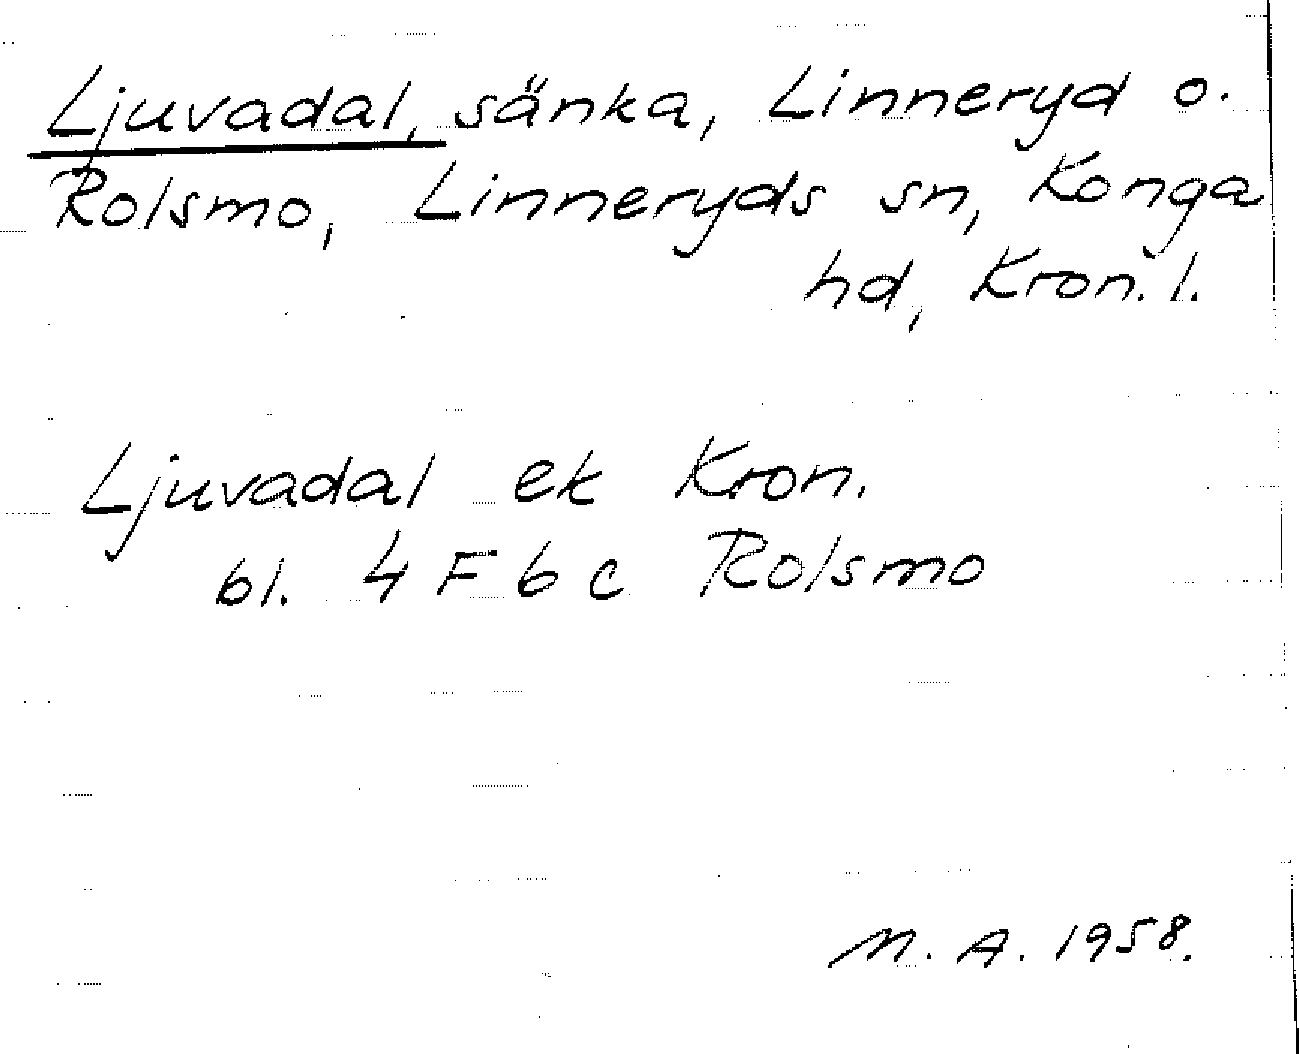 Ljuvadal, sänka, Linneryd o.
Rolsmo, Linneryds sn, Konga
hd, Kron. l.
Ljuvadal ek Kron.
bl. 4 F 6 c Rolsmo
M. A. 1958.